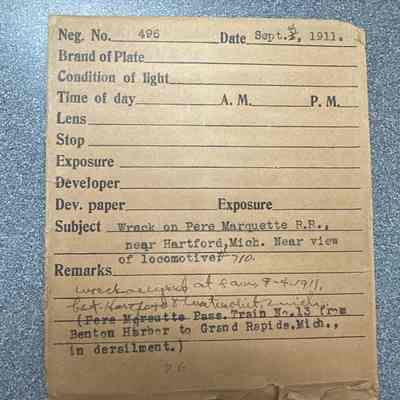 Neg. No. 496 Date Sept. 5, 1911.
Brand of Plate
Condition of light
Time of day A. M. P. M.
Lens
Stop
Exposure
Developer
Dev. paper Exposure
Subject Wreck on Pere Marquette R.R.,
near Hartford, Mich. Near view
of locomotive 710.
Remarks
Wreck occurred at 9-4-1911,
bet. Hartford & Mich.
(Pere Marquette Pass. Train No. 13 from
Benton Harbor to Grand Rapids, Mich.,
in dersilment.)